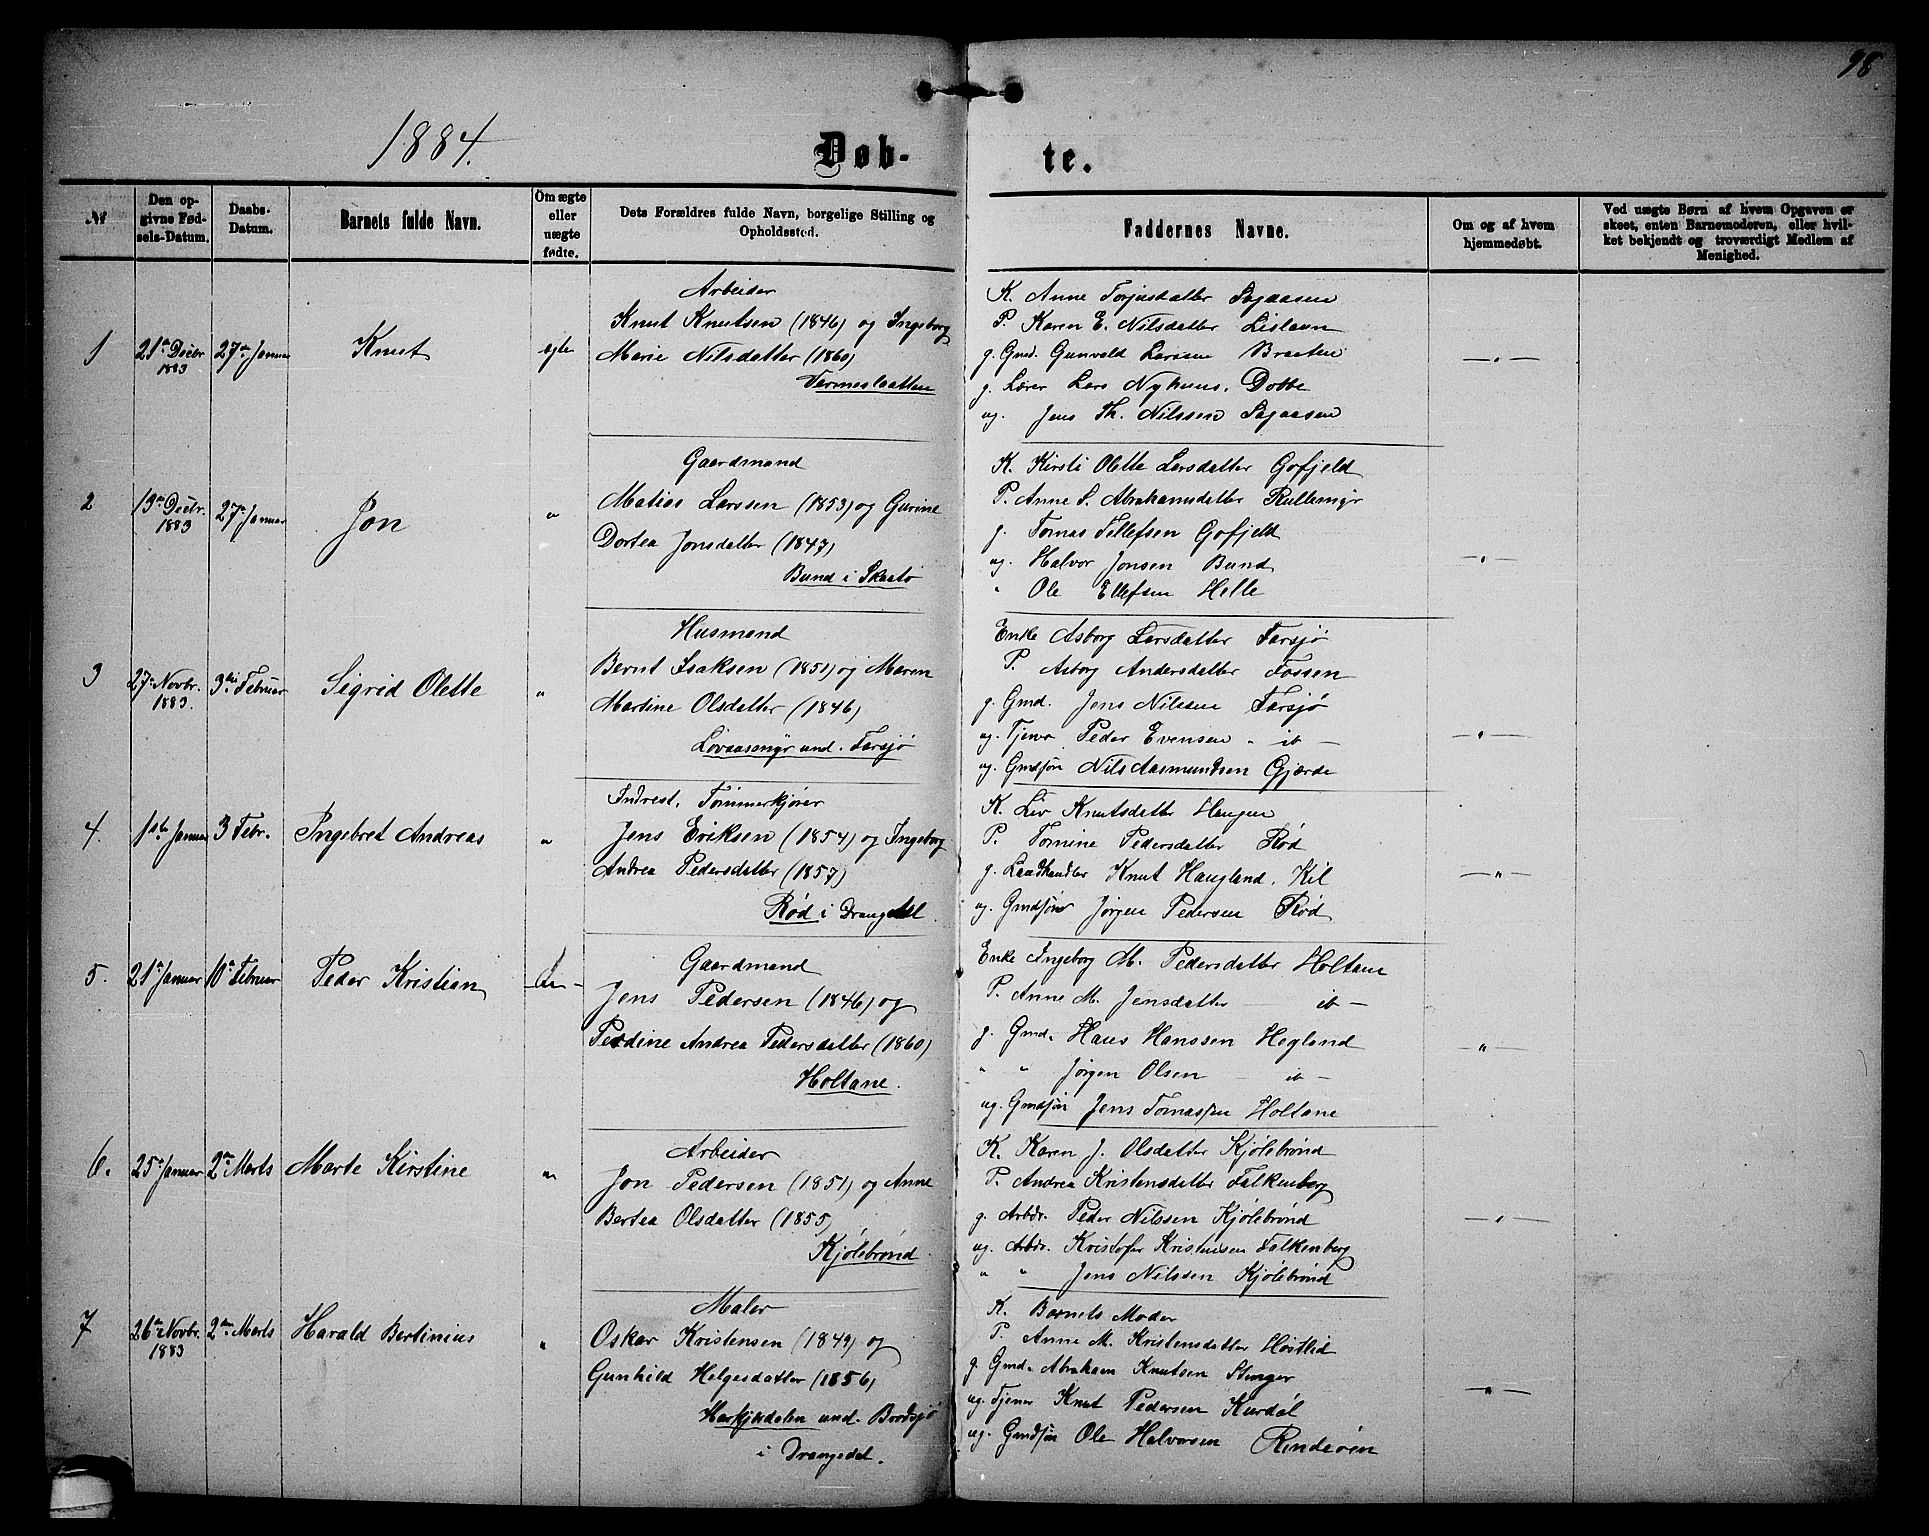 98
1884.
Døb-
te.
№
Den op-
givne Fød-
sels-Datum.
Daabs-
Datum.
Barnets fulde Navn.
Om ægte
eller
uægte
fødte.
Dets Forældres fulde Navn, borgelige Stilling og
Opholdssted.
Faddernes Navne.
Om og af hvem
hjemmedøbt.
Ved uægte Børn af hvem Opgaven er
skeet, enten Barnemoderen, eller hvil-
ket bekjendt og troværdigt Medlem af
Menighed.
1
21de Decbr
1883
27de Januar
Knut
egte
Arbeider
Knut Knutsen (1846) og Ingeborg
Marie Nilsdatter (1860)
K. Anne Torjusdatter Sagaasen
P. Karen E. Nilsdatter Lislaun
g. Gmd. Gunvald Larsen Braaten
g. Lærer Lars Nyhuus, Dobbe
ug. Jens Th. Nilssen Sagaasen
— " —
2
19de Decbr.
1883
27de Januar
Jon
"
Gaardmand
Matias Larssen (1853) og Gurine
Dortea Jonsdatter (1847)
Bund i Skaatø
K. Kirsti Olette Larsdatter Gofjeld
P. Anne S. Abrahamsdatter Rullemyr
g. Tomas Tellefsen Gofjeld
ug. Halvor Jonsen Bund
" Ole Ellefsen Helle
— " —
3
27de Novbr.
1883.
3die Februar
Sigrid Olette
"
Husmand
Bernt Isaksen (1851) og Maren
Martine Olsdatter (1846)
Lövaasmyr und. Farsjø
Enke Asborg Larsdatter Farsjø
P. Asborg Andersdatter Fossen
g. Gmd. Jens Nilssen Farsjø
ug. Tjener Peder Evensen - it -
ug. Gmdsøn Nils Aasmundsen Gjærde
— " —
4.
1ste Januar
3 Febr.
Ingebret Andreas
"
Indrest. Tømmerkjører
Jens Eriksen (1854) og Ingeborg
Andrea Pedersdatter (1857)
Rød i Drangedal.
K. Liv Knutsdatter Haugen
P. Tomine Pedersdatter Rød
g. Landhandler Knut Haugland, Kil
ug. Gmdsøn Jørgen Pedersen Rød
— " —
5.
21de Januar
10de Februar
Peder Kristian
Gaardmand
Jens Pedersen (1846) og
Pedine Andrea Pedersdatter (1860)
Holtane.
Enke Ingeborg M. Pedersdatter Holtane
P. Anne M. Jensdatter - it -
g. Gmd. Hans Hanssen Hegland
" " Jørgen Olsen - it -
ug. Gmdsøn Jens Tomassen Holtane
— " —
6.
25de Januar
2den Marts
Marte Kirstine
"
Arbeider
Jon Pedersen (1851) og Anne
Bertea Olsdatter (1855)
Kjølebrønd.
K. Karen J. Olsdatter Kjölebrönd
P. Andrea Kristensdatter Falkenberg
g. Arbdr. Peder Nilssen Kjölebrönd
ug. Arbdr. Kristofer Kristensen Falkenberg
" " Jens Nilssen Kjölebrönd
— " —
7
26de Novbr.
1883
2den Marts
Harald Bertinius
"
Maler
Oskar Kristensen (1849) og
Gunhild Helgesdatter (1856)
und. Brødsjø
i Drangedal.
K. Barnets Moder
P. Anne M. Kristensdatter Høstlid
g. Gmd. Abraham Knutsen Stenger
ug. Tjener Knut Pedersen Kurdøl
ug. Gmdsøn Ole Halvorsen
— " —